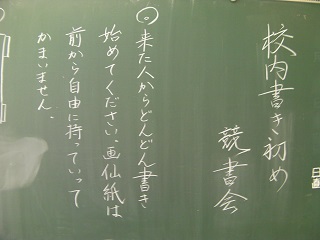 校内書き初め
競書会
◎来た人からどんどん書き
始めてください。画仙紙は
前から自由に持っていって
かまいません。